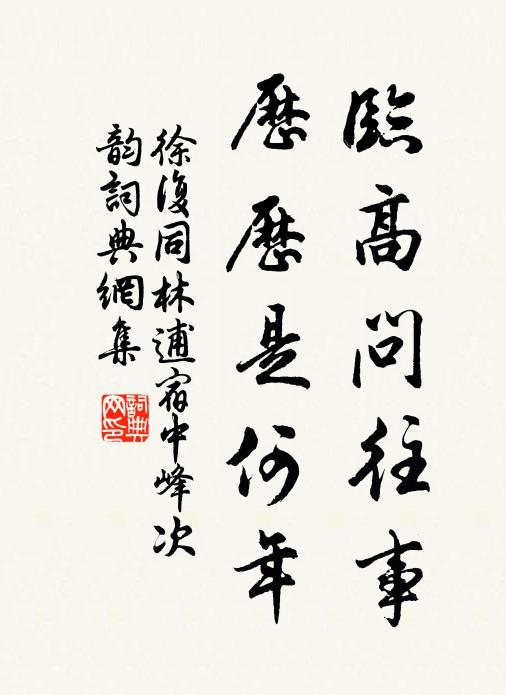 臨高問往事
歷歷是何年
徐復同林逋宿中峰次
韵詞典網集
詞典网印